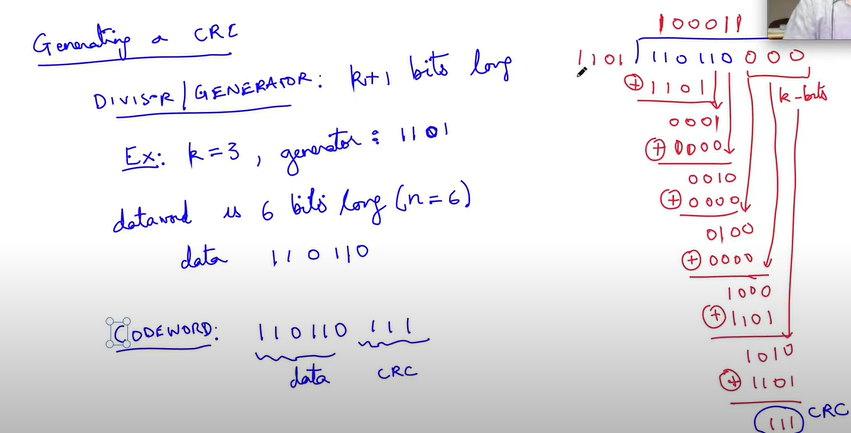 Generating a CRC
DIVISOR/GENERATOR: k+1 bits long
Ex: k=3, generator: 1101
dataword is 6 bits long (n=6)
data 110110
CODEWORD: 110110 111
data CRC
100011
1101 110110000
⊕1101
k-bits
0001
⊕0000
0010
⊕0000
0100
⊕0000
1000
⊕1101
1010
⊕1101
111 CRC